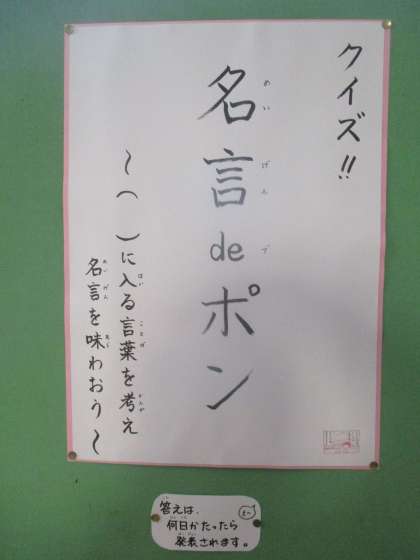 クイズ!!
名言deポン
～（　）に入る言葉を考え
名言を味わおう～
答えは、
何日かたったら
発表されます。